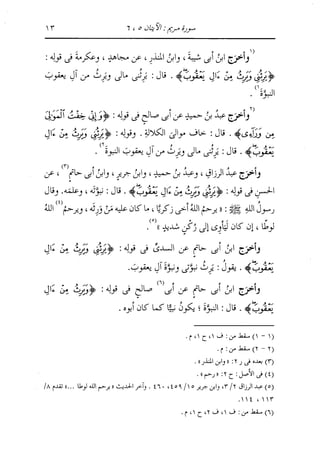 سورة مريم : الآيتان ٥ ، ٦ ١٣
(١) وأخرج ابنُ أبى شيبةَ ، وابنُ المنذرِ ، عن مجاهدٍ ، وعكرمةَ فى قولِه :
﴿يَرِثُنِى وَيَرِثُ مِنْ ءَالِ يَعْقُوبَ﴾ . قال : يَرِثُنى مالى ويَرِثُ من آلِ يعقوبَ
النبوَّةَ(١) .
(٢) وأخرَج عبدُ بنُ حميدٍ عن أبى صالحٍ فى قولِه : ﴿وَإِنِّى خِفْتُ ٱلْمَوَٰلِىَ
مِن وَرَآءِى﴾ . قال : خاف موالىَ الكلالةِ . وقولِه : ﴿يَرِثُنِى وَيَرِثُ مِنْ ءَالِ
يَعْقُوبَ﴾ . قال : يَرِثُنى مالى ويَرِثُ من آلِ يعقوبَ النبوةَ(٢) .
وأخرَج عبدُ الرزاقِ ، وعبدُ بنُ حميدٍ ، وابنُ جريرٍ ، وابنُ أبى حاتمٍ(٣) ، عن
الحسنِ فى قولِه : ﴿يَرِثُنِى وَيَرِثُ مِنْ ءَالِ يَعْقُوبَ﴾ . قال : نبوَّتَه ، وعلمَه . وقال
رسولُ اللهِ ﷺ : « يرحمُ اللهُ أخى زكريَّا ، ما كان عليه مَنْ وَرِثَه ، ويرحمُ(٤) اللهُ
لوطًا ، إن كان لَيَأْوِى إلى رُكْنٍ شديدٍ »(٥) .
وأخرَج ابنُ أبى حاتمٍ عن السدىِّ فى قولِه : ﴿يَرِثُنِى وَيَرِثُ مِنْ ءَالِ
يَعْقُوبَ﴾ . يقولُ : يَرِثُ نبوَّتى ونبوَّةَ آلِ يعقوبَ.
وأخرَج ابنُ أبى حاتمٍ عن أبى(٦) صالحٍ فى قولِه : ﴿يَرِثُنِى وَيَرِثُ مِنْ ءَالِ
يَعْقُوبَ﴾ . قال : النبوَّةَ ؛ يكونُ نبيًّا كما كان أبوه .
(١ - ١) سقط من : ف ١، ح ١، م .
(٢ - ٢) سقط من : م .
(٣) بعده فى ر ٢ : « وابن المنذر » .
(٤) فى الأصل، ح ٢ : « رحم » .
(٥) عبد الرزاق ٣/٢، وابن جرير ٤٥٩/١٥، ٤٦٠ . وآخر الحديث « يرحم الله لوطا ... » تقدم ٨/
١١٣ ، ١١٤ .
(٦) سقط من : ف ١، ف ٢، ح ١، م .